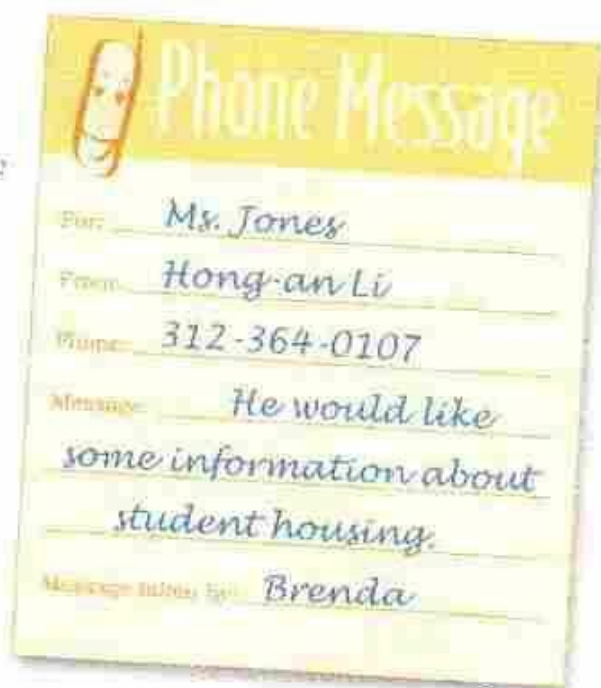 Phone Message
For: Ms. Jones
From: Hong-an Li
Phone: 312-364-0107
Message: He would like
some information about
student housing.
Message taken by: Brenda